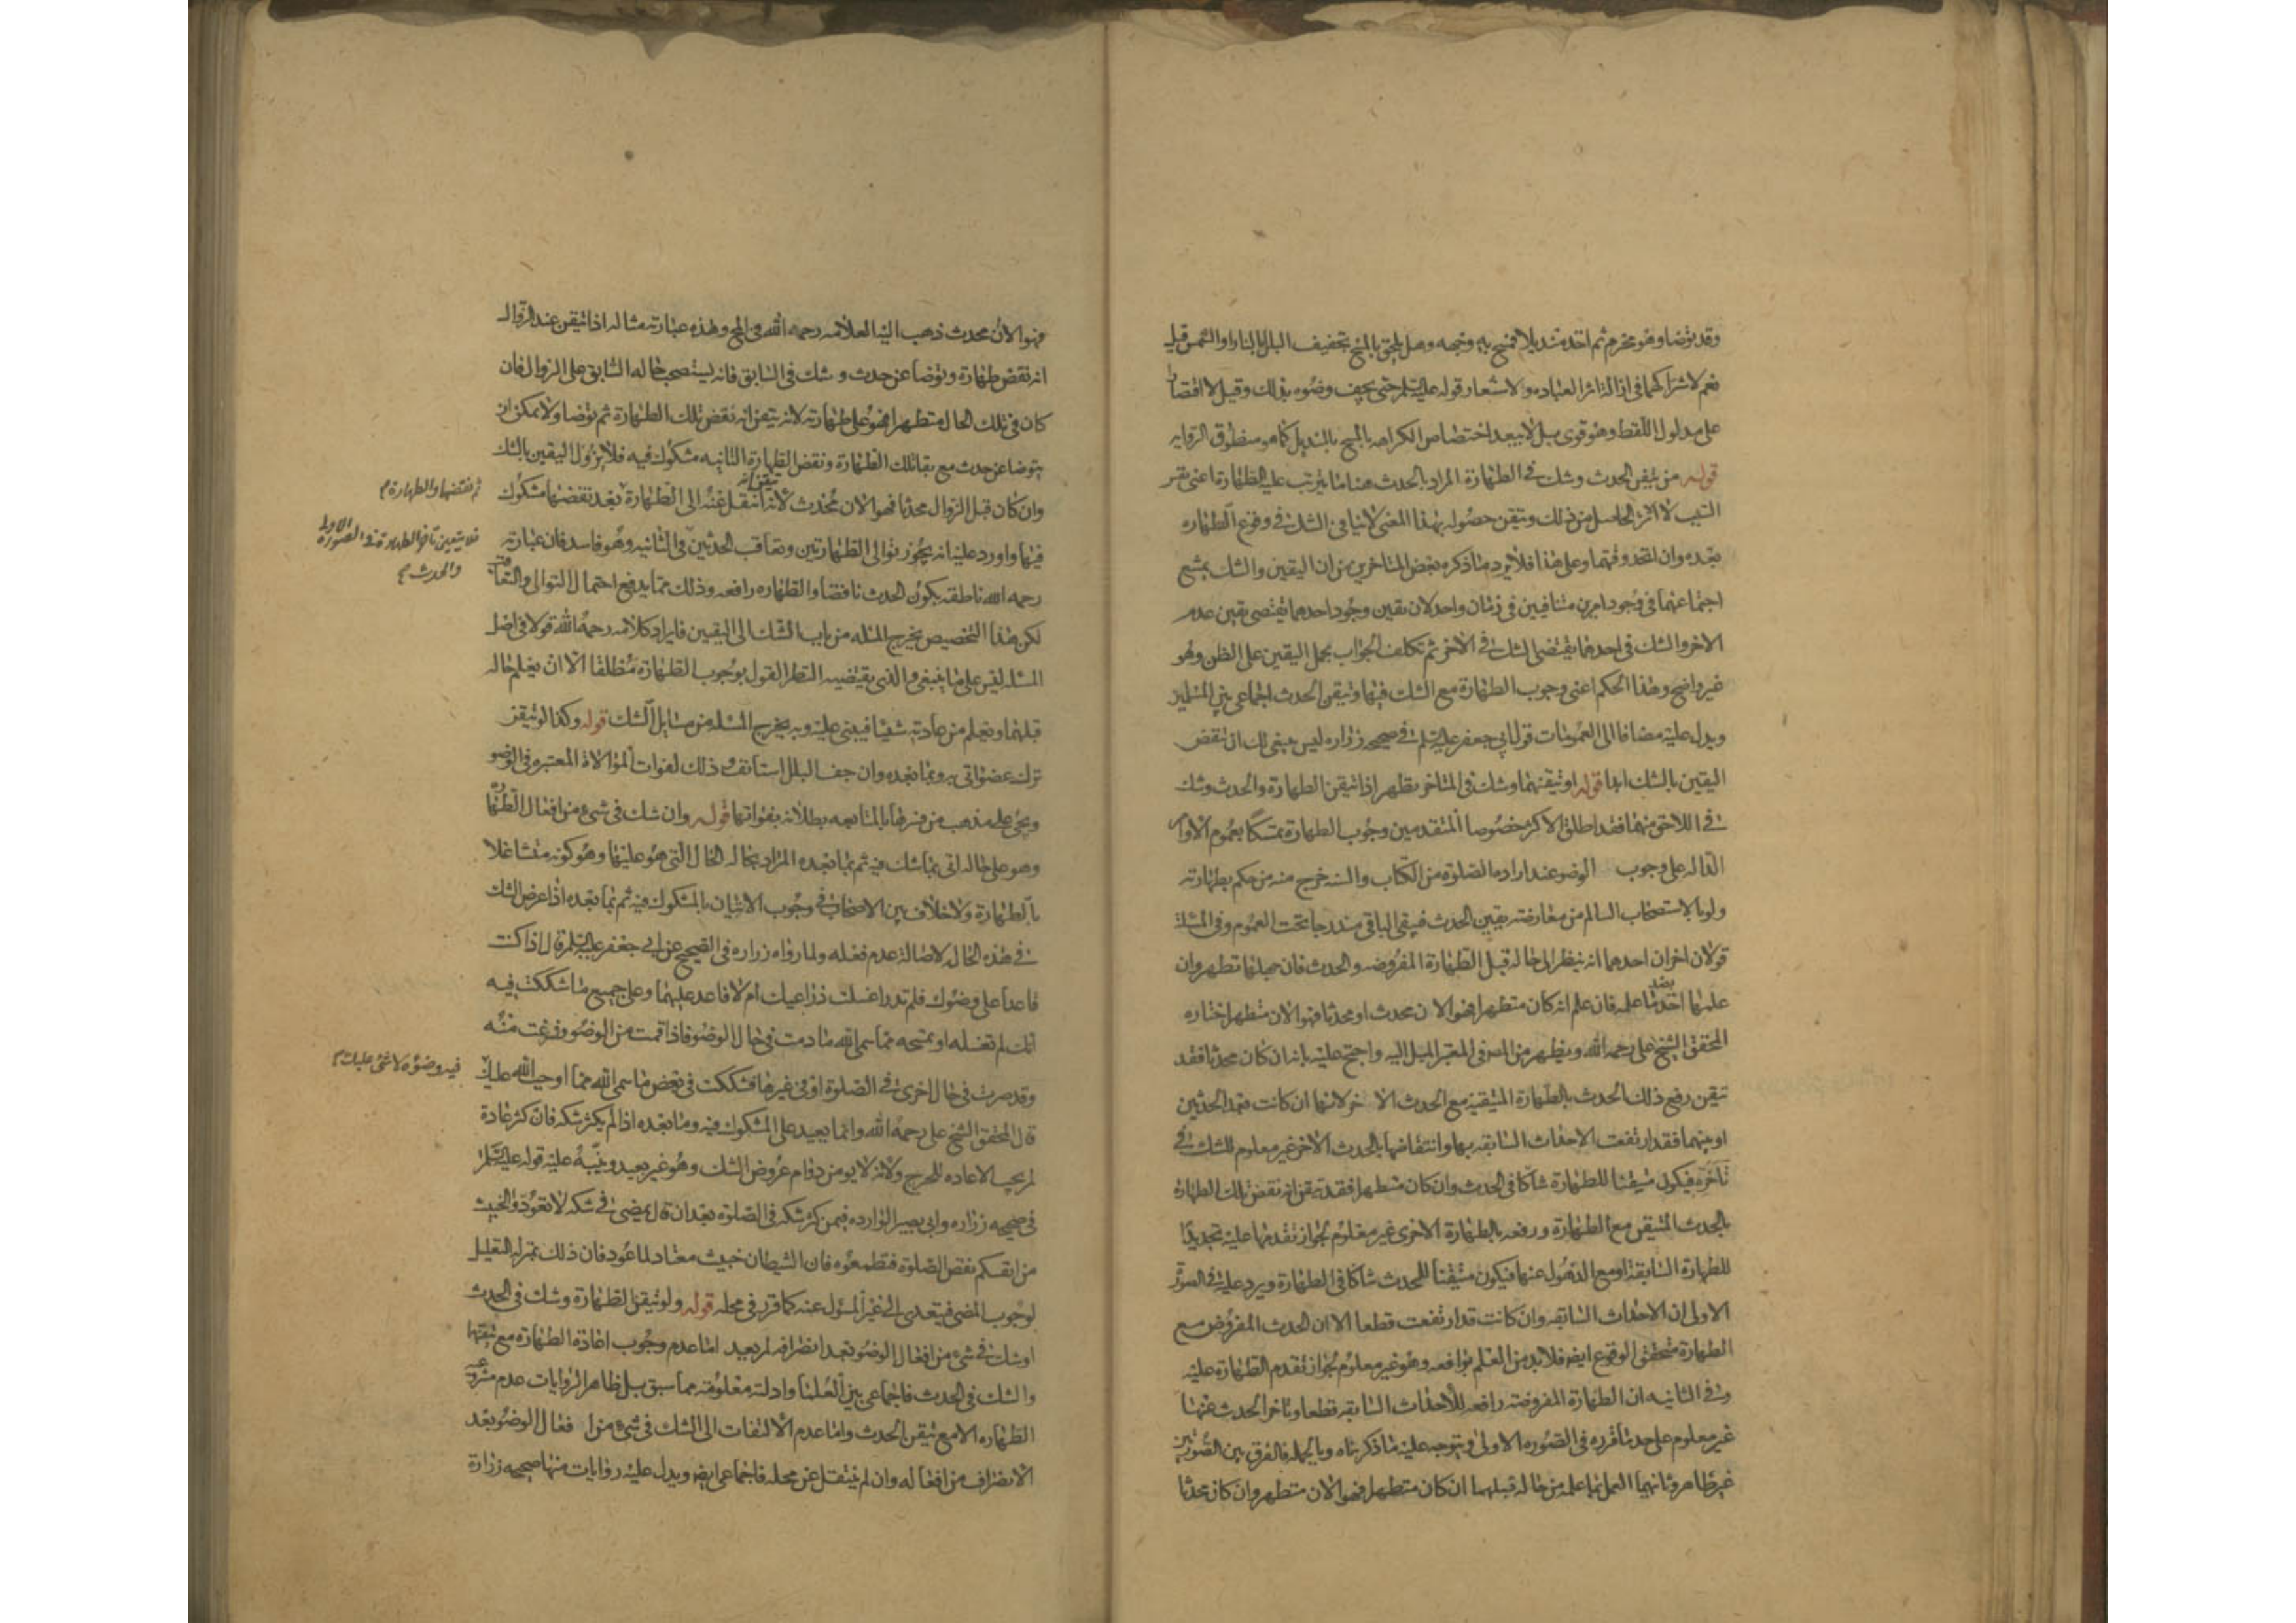 وقد توضا وهو محرم ثم اخذ منديلا فمسح به وجهه وهل يلحق بالمسح تجفيف البلل بالنار او الشمس قيل
نعم لاشتراكهما فى ازالة اثر العباده ولاشعار قوله عليه السلم حتى يجف وضوه بذلك وقيل لا اقتصارا
على مدلول اللفظ وهو قوى بل لا يبعد اختصاص الكراهه بالمسح بالمنديل كما هو منطوق الروايه
قوله من تيقن الحدث وشك فى الطهارة المراد بالحدث هنا ما يترتب عليه الطهارة اعنى نفس
السبب لا الاثر الحاصل من ذلك وتيقن حصوله بهذا المعنى لا ينافى الشك فى وقوع الطهاره
بعده وان اتحد وقتهما وعلى هذا فلا يرد ما ذكره بعض المتاخرين من ان اليقين والشك يمتنع
اجتماعهما فى وجود امرين متنافيين فى زمان واحد لان يقين وجود احدهما يقتضى يقين عدم
الاخر والشك فى احدهما يقتضى الشك فى الاخر ثم تكلف الجواب بحمل اليقين على الظن وهو
غير واضح وهذا الحكم اعنى وجوب الطهارة مع الشك فيها وتيقن الحدث اجماعى بين المسلمين
ويدل عليه مضافا الى العمومات قول ابى جعفر عليه السلم فى صحيحه زراره ليس ينبغى لك ان تنقض
اليقين بالشك ابدا قوله او تيقنهما وشك فى المتاخر تطهر اذا تيقن الطهارة والحدث وشك
فى اللاحق منهما فقد اطلق الاكثر خصوصا المتقدمين وجوب الطهارة تمسكا بعموم الاوامر
الداله على وجوب الوضو عند اراده الصلوة من الكتاب والسنه خرج منه من حكم بطهارته
ولو بالاستصحاب السالم من معارضته يقين الحدث فيبقى الباقى مندرجا تحت العموم وفى المسئلة
قولان اخران احدهما انه ينظر الى حاله قبل الطهارة المفروضه والحدث فان جهلها تطهر وان
علمها اخذ بضد ما علمه فان علم انه كان متطهرا فهو الان محدث او محدثا فهو الان متطهر اختاره
المحقق الشيخ على رحمه الله ويظهر من المص فى المعتبر الميل اليه واحتج عليه بانه ان كان محدثا فقد
تيقن رفع ذلك الحدث بالطهارة المتيقنه مع الحدث الاخر لانها ان كانت بعد الحدثين
او بينهما فقد ارتفعت الاحداث السابقه بها وانتقاضها بالحدث الاخر غير معلوم للشك فى
تاخره فيكون متيقنا للطهارة شاكا فى الحدث وان كان متطهرا فقد تيقن انه نقض تلك الطهارة
بالحدث المتيقن مع الطهارة ورفعه بالطهارة الاخرى غير معلوم لجواز تقدمها عليه تجديدا
للطهارة السابقه او مع الذهول عنها فيكون متيقنا للحدث شاكا فى الطهارة ويرد عليه فى الصورة
الاولى ان الاحداث السابقه وان كانت قد ارتفعت قطعا الا ان الحدث المفروض مع
الطهارة متحقق الوقوع ايضا فلا بد من العلم برافعه وهو غير معلوم لجواز تقدم الطهارة عليه
وفى الثانيه ان الطهارة المفروضه رافعه للاحداث السابقه قطعا وتاخر الحدث عنها
غير معلوم على حد ما قرره فى الصوره الاولى ويتوجه عليه ما ذكرناه وبالجمله فالفرق بين الصورتين
غير ظاهر وثانيهما العمل بما علمه من حاله قبلهما ان كان متطهرا فهو الان متطهر وان كان محدثا
فهو الان محدث ذهب اليه العلامه رحمه الله فى المخ وهذه عبارته مثاله اذا تيقن عند الزوال
انه نقض طهارة وتوضا عن حدث وشك فى السابق فانه يستصحب حاله السابق على الزوال فان
كان فى تلك الحال متطهرا فهو على طهارته لانه تيقن انه نقض تلك الطهارة ثم توضا ولا يمكن ان
يتوضا عن حدث مع بقا تلك الطهارة ونقض الطهارة الثانيه مشكوك فيه فلا يزول اليقين بالشك
وان كان قبل الزوال محدثا فهو الان محدث لانه تيقن انه انتقل عنه الى الطهارة بعد نقضها مشكوك
ثم نقضها والطهارة
فيها واورد عليه انه يجوز توالى الطهارتين وتعاقب الحدثين فى الثانيه وهو فاسد فان عبارته
فلا يتعين تاخر الطهارة فى الصورة الاولى
والحدث
رحمه الله ناطقه بكون الحدث ناقضا والطهاره رافعه وذلك مما يدفع احتمال التوالى والتعاقب
لكن هذا التخصيص يخرج المسئله من باب الشك الى اليقين فايراد كلامه رحمه الله قولا فى اصل
المسئله ليس على ما ينبغى والذى يقتضيه النظر القول بوجوب الطهارة مطلقا الا ان يعلم حاله
قبلهما ويعلم من عادته شيئا فيبنى عليه وبه يخرج المسئله من مسايل الشك قوله وكذا لو تيقن
ترك عضو اتى به وبما بعده وان جف البلل استانف وذلك لفوات الموالاة المعتبره فى الوضو
ويجئ على مذهب من فسرها بالمتابعه بطلانه بفواتها قوله وان شك فى شىء من افعال الطهارة
وهو على حاله اتى بما شك فيه ثم بما بعده المراد بحاله الحال التى هو عليها وهو كونه متشاغلا
بالطهارة ولا خلاف بين الاصحاب فى وجوب الاتيان بالمشكوك فيه ثم بما بعده اذا عرض الشك
فى هذه الحال لاصالة عدم فعله ولما رواه زراره فى الصحيح عن ابى جعفر عليه السلم قال اذا كنت
قاعدا على وضوك فلم تدر اغسلت ذراعيك ام لا فاعد عليهما وعلى جميع ما شككت فيه
انك لم تغسله او تمسحه مما سمى الله ما دمت فى حال الوضو فاذا قمت من الوضو وفرغت منه
وقد صرت فى حال اخرى فى الصلوة او فى غيرها فشككت فى بعض ما سمى الله مما اوجب الله عليك
فيه وضوءه لا شئ عليك
قال المحقق الشيخ على رحمه الله وانما يعيد على المشكوك فيه وما بعده اذا لم يكثر شكه فان كثر عادة
لم يجب الاعاده للحرج ولانه لا يومن دوام عروض الشك وهو غير بعيد وينبه عليه قوله عليه السلم
فى صحيحه زراره وابى بصير الوارده فيمن كثر شكه فى الصلوة بعد ان قال يمضى فى شكه لا تعودوا الخبيث
من انفسكم نقض الصلوة فتطمعوه فان الشيطان خبيث معتاد لما عود فان ذلك بمنزله التعليل
لوجوب المضى فيتعدى الى غير المسئول عنه كما قرر فى محله قوله ولو تيقن الطهارة وشك فى الحدث
او شك فى شئ من افعال الوضو بعد انصرافه لم يعد اما عدم وجوب اعادة الطهارة مع تيقنها
والشك فى الحدث فاجماعى بين العلما وادلته معلومه مما سبق بل ظاهر الروايات عدم مشروعيه
الطهاره الا مع تيقن الحدث واما عدم الالتفات الى الشك فى شئ من افعال الوضو بعد
الانصراف من افعاله وان لم ينتقل عن محله فاجماعى ايضا ويدل عليه روايات منها صحيحه زرارة